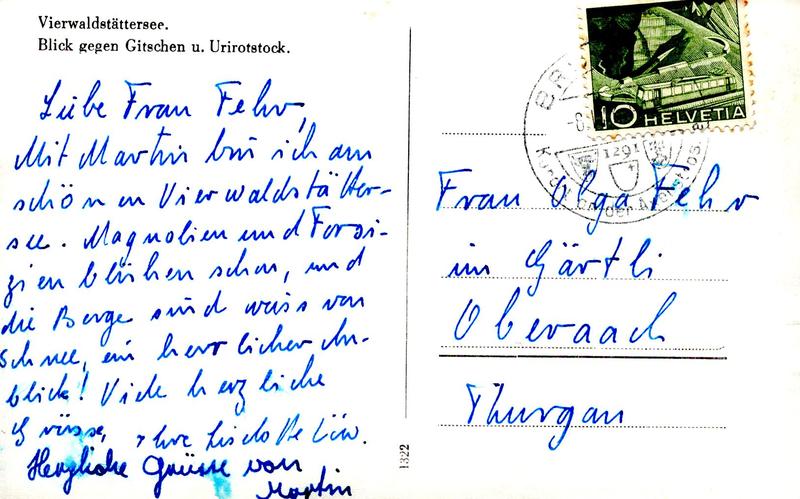 Vierwaldstättersee.
Blick gegen Gitschen u. Urirotstock.
Liebe Frau Fehr,
Mit Martin bin ich am
schönen Vierwaldstätter-
see. Magnolien und Forsi-
zien blühen schon, und
die Berge sind weiss von
Schnee, ein herrlicher An-
blick! Viele herzliche
Grüsse, Ihre Liselotte Löw.
Herzliche Grüsse von
Martin
1322
10 HELVETIA
1291
Frau Olga Fehr
im Gärtli
Oberaach
Thurgau